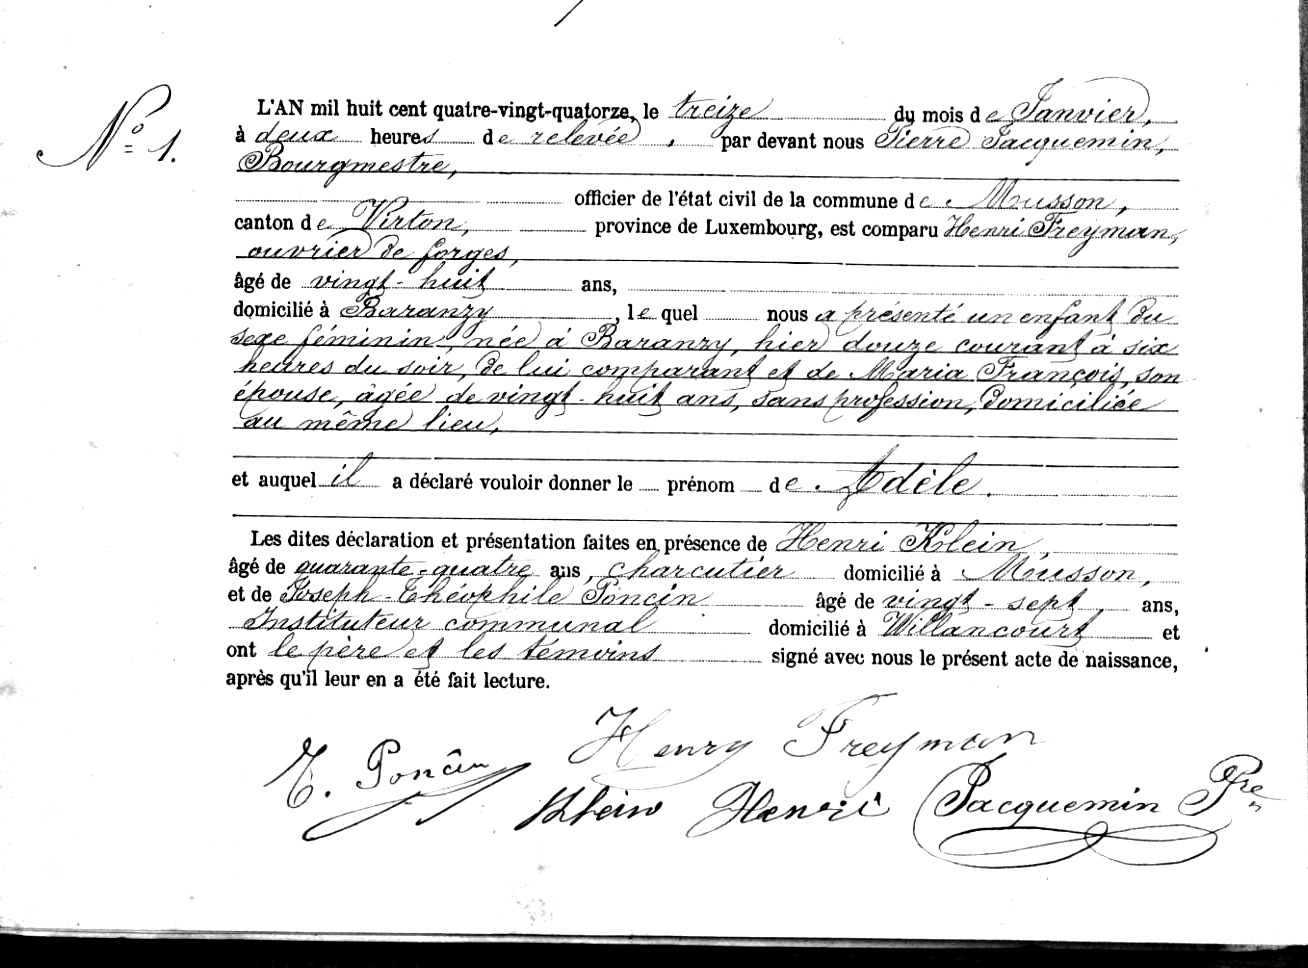 Nº 1.
L'AN mil huit cent quatre-vingt-quatorze, le treize du mois de Janvier,
à deux heures de relevée, par devant nous Pierre Jacquemin,
Bourgmestre,
officier de l'état civil de la commune de Musson,
canton de Virton, province de Luxembourg, est comparu Henri Freyman,
ouvrier de forges,
âgé de vingt-huit ans,
domicilié à Baranzy, lequel nous a présenté un enfant du
sexe féminin, née à Baranzy, hier douze courant à six
heures du soir, de lui comparant et de Maria François, son
épouse, âgée de vingt-huit ans, sans profession, domiciliée
au même lieu,
et auquel il a déclaré vouloir donner le prénom de Adèle.
Les dites déclaration et présentation faites en présence de Henri Klein,
âgé de quarante-quatre ans, charcutier domicilié à Musson,
et de Joseph-Théophile Poncin âgé de vingt-sept ans,
Instituteur communal domicilié à Willancourt et
ont le père et les témoins signé avec nous le présent acte de naissance,
après qu'il leur en a été fait lecture.
Henry Freyman
T. Poncin
Klein Henri Jacquemin Pre